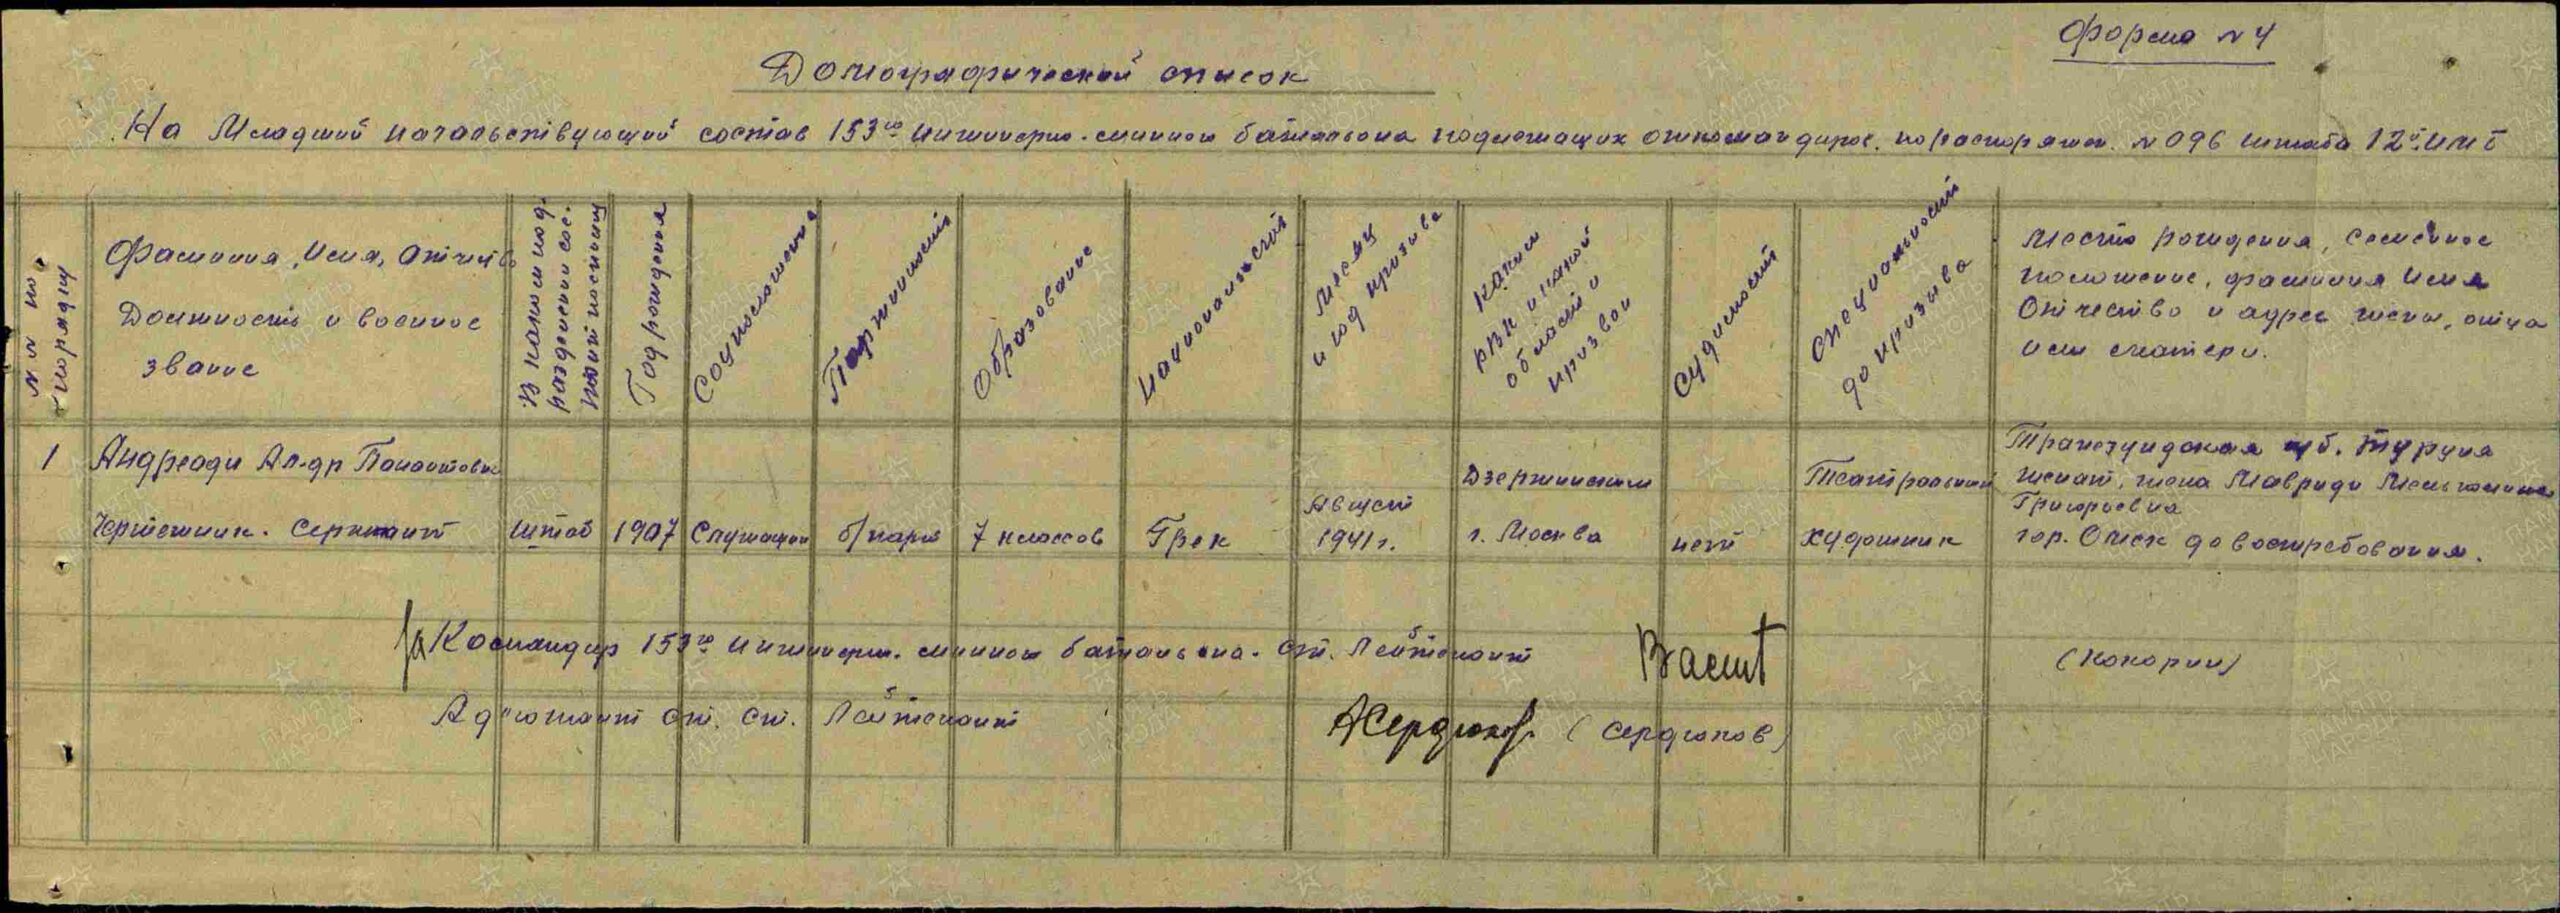 Форма № 4
Домографический список
На Младший начальствующий состав 153го инжинерно-минного батальона подлежащих откомандиров. по распоряжен. № 096 штаба 12й ИМБ
№ № по порядку
Фамилия, Имя, Отчеств
Должность и военное
звание
В каком под-
разделении сос.
Год рождения
Соцположение
Партийность
Образование
Национальность
Месяц
и год призыва
Каким
РВК и какой
области
призван
Судимость
Специальность
до призыва
Место рождения, Семейное
положение, фамилия Имя
Отчество и адрес жены, отца
или матери.
1 Андреади Ал-др Панаитович Дзержинским Театральный Трапезундская губ. Турция
женат, жена Мавриди Мельпомина
Григорьевна
Чертежник. Сержант Штаб 1907 Служащий б/парт 7 классов Грек Август 1941 г. г. Москва нет художник гор. Омск до востребования.
За Командир 153го инжинерн. минного батальона. Ст. Лейтенант (Кокорин)
Адъютант ст. Ст. Лейтенант АСердюков (Сердюков)